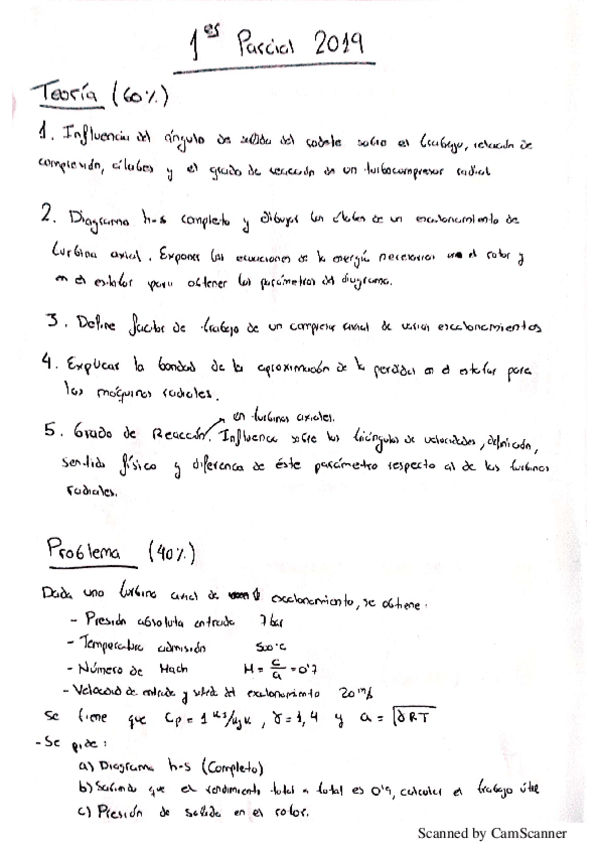 1er Parcial 2019
Teoría (60%)
1. Influencia del ángulo de salida del rodete sobre el trabajo, relación de
compresión, álabes y el grado de reacción de un turbocompresor radial
2. Diagrama h-s completo y dibujar los álabes de un escalonamiento de
turbina axial. Exponer las ecuaciones de la energía necesarias en el rotor y
en el estator para obtener los parámetros del diagrama.
3. Define factor de trabajo de un compresor axial de varios escalonamientos
4. Explicar la bondad de la aproximación de la perdidas en el estator para
las máquinas radiales.
en turbinas axiales.
5. Grado de Reacción. Influencia sobre los triángulos de velocidades, definición,
sentido físico y diferencia de éste parámetro respecto al de las turbinas
radiales.
Problema (40%)
Dada una turbina axial de escalonamiento, se obtiene:
- Presión absoluta entrada 7 bar
- Temperatura admisión 500ºC
- Número de Mach M = c/a = 0'7
- Velocidad de entrada y salida del escalonamiento 20 m/s
Se tiene que Cp = 1 KJ/kgK, γ = 1,4 y a = √γRT
- Se pide:
a) Diagrama h-s (Completo)
b) Sabiendo que el rendimiento total a total es 0'9, calcular el trabajo útil
c) Presión de salida en el rotor.
Scanned by CamScanner